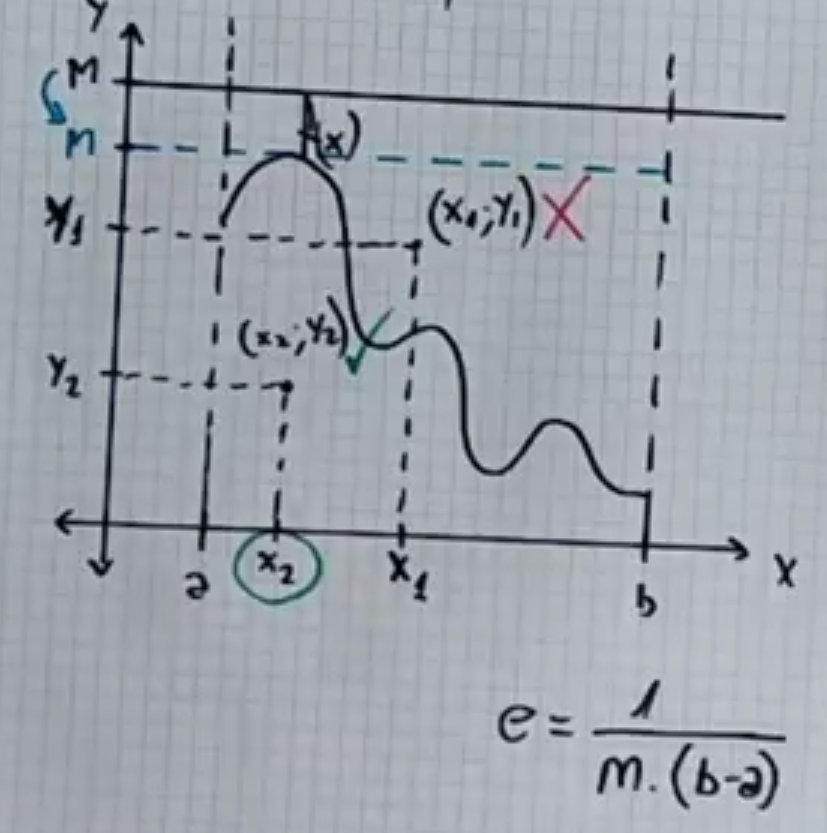 Y
M
m
f(x)
Y1
(x1;Y1) X
(x2;Y2) ✓
Y2
a x2 x1 b X
e = 1 / m.(b-a)